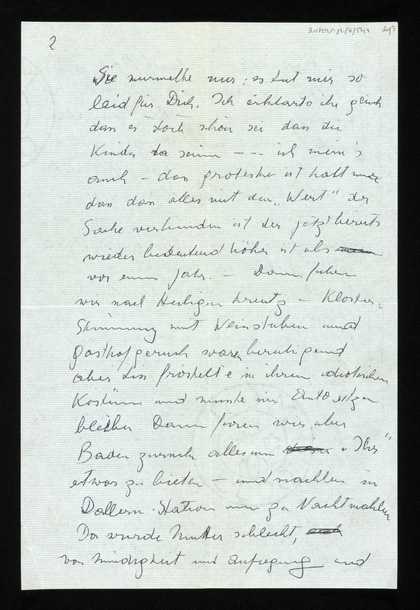 2
Sie murmelte nur: es tut mir so
leid für Dich. Ich erklärte ihr gleich
dass es doch schön sei dass die
Kinder da seien -- ich mein's
auch - das groteske ist halt nur
dass das alles mit dem "Wert" der
Sache verbunden ist der jetzt bereits
wieder bedeutend höher ist als
vor einem Jahr. - Dann fuhren
wir nach Heiligen Kreutz - Kloster-
Stimmung mit Weinstuben und
Gasthofgeruch war beruhigend
aber fröstelte in ihrem
Kostüm und musste im Auto sitzen
bleiben Dann fuhren wir über
Baden zurück alles um "Ihr"
etwas zu bieten - und machten in
Station um zu Nachtmahlen
Da wurde Mutter schlecht,
von Müdigkeit und Aufregung und